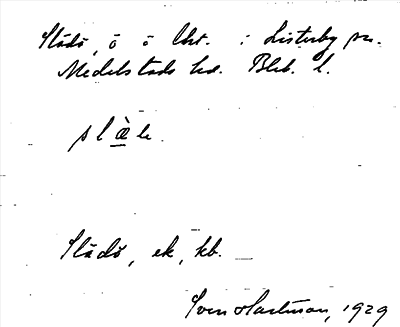 Slädö, ö ö Chrt. i Listerby sn.
Medelstads hd. Blek. l.
slæ̀le.
Slädö, ek, kb.
Sven Hartman, 1929